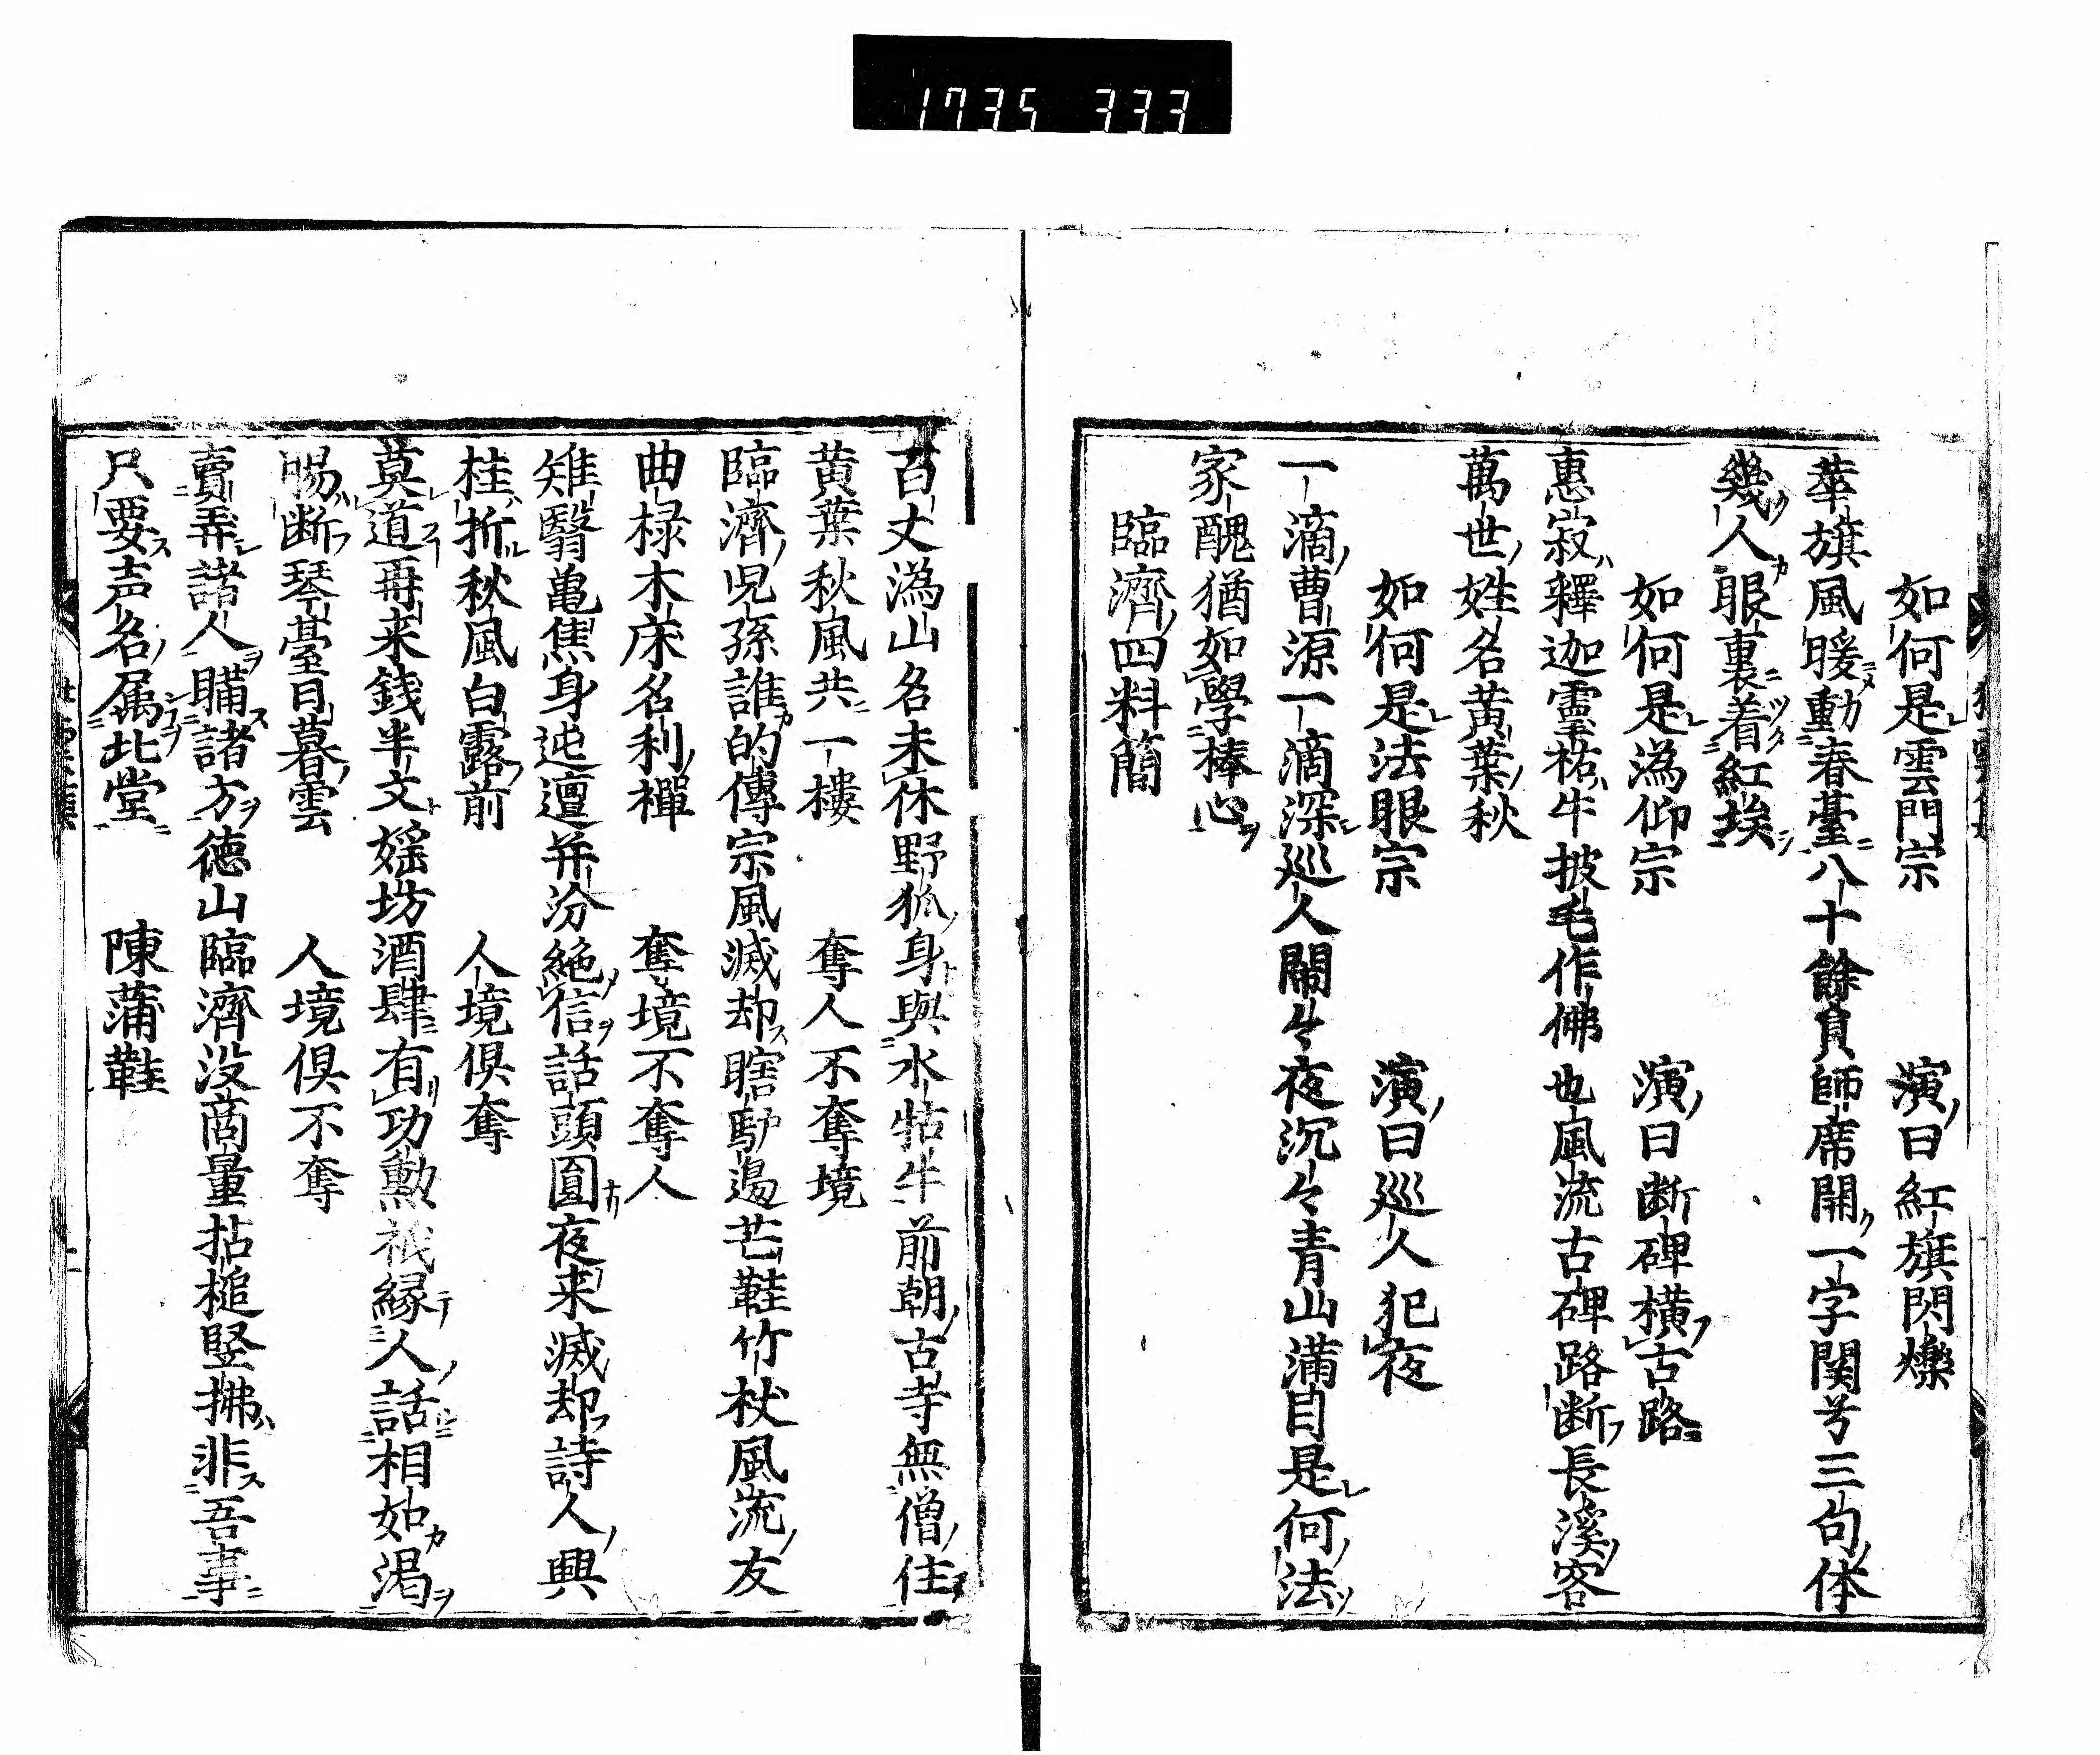 1735 333
如何是雲門宗　演曰紅旗閃爍
華旗風暖動春臺八十餘員師席開一字関号三句体
幾人眼裏着紅埃
如何是潙仰宗　演曰断碑横古路
惠寂釋迦靈祐牛披毛作佛也風流古碑路断長溪客
萬世姓名黄葉秋
如何是法眼宗　演曰巡人犯夜
一滴曹源一滴深巡人閙々夜沉々青山満目是何法
家醜猶如學棒心
臨濟四料簡
百丈潙山名未休野狐身與水牯牛前朝古寺無僧住
黄葉秋風共一樓　奪人不奪境
臨濟児孫誰的傳宗風滅却瞎馿邉芒鞋竹杖風流友
曲椂木床名利禅　奪境不奪人
雉翳亀焦身迍邅并汾絶信話頭圓夜来滅却詩人興
桂折秋風白露前　人境俱奪
莫道再来銭半文婬坊酒肆有功勲祇縁人話相如渇
腸断琴臺日暮雲　人境俱不奪
賣弄諸人瞞諸方徳山臨濟没商量拈槌竪拂非吾事
只要声名属北堂　陳蒲鞋